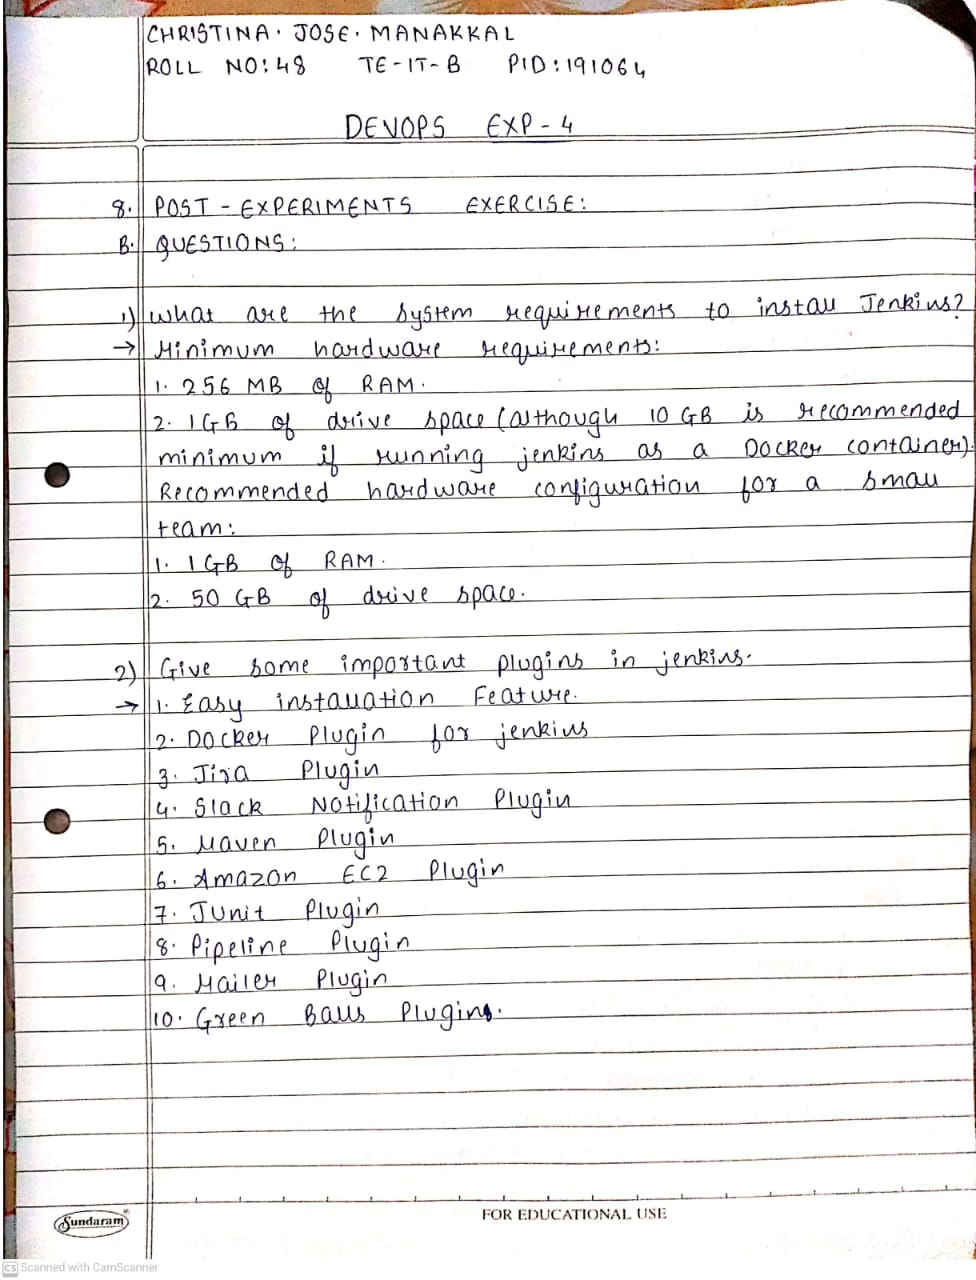 CHRISTINA. JOSE. MANAKKAL
ROLL NO: 48 TE-IT-B PID: 191064
DEVOPS EXP-4
8. POST-EXPERIMENTS EXERCISE:
B. QUESTIONS:
1) What are the system requirements to install Jenkins?
→ Minimum hardware requirements:
1. 256 MB of RAM.
2. 1GB of drive space (although 10 GB is recommended
minimum if running jenkins as a Docker container).
Recommended hardware configuration for a small
team:
1. 1GB of RAM.
2. 50 GB of drive space.
2) Give some important plugins in jenkins.
→ 1. Easy installation Feature.
2. Docker Plugin for jenkins
3. Jira Plugin
4. Slack Notification Plugin
5. Maven Plugin
6. Amazon EC2 Plugin
7. JUnit Plugin
8. Pipeline Plugin
9. Mailer Plugin
10. Green Balls Plugins.
Sundaram
FOR EDUCATIONAL USE
CS Scanned with CamScanner